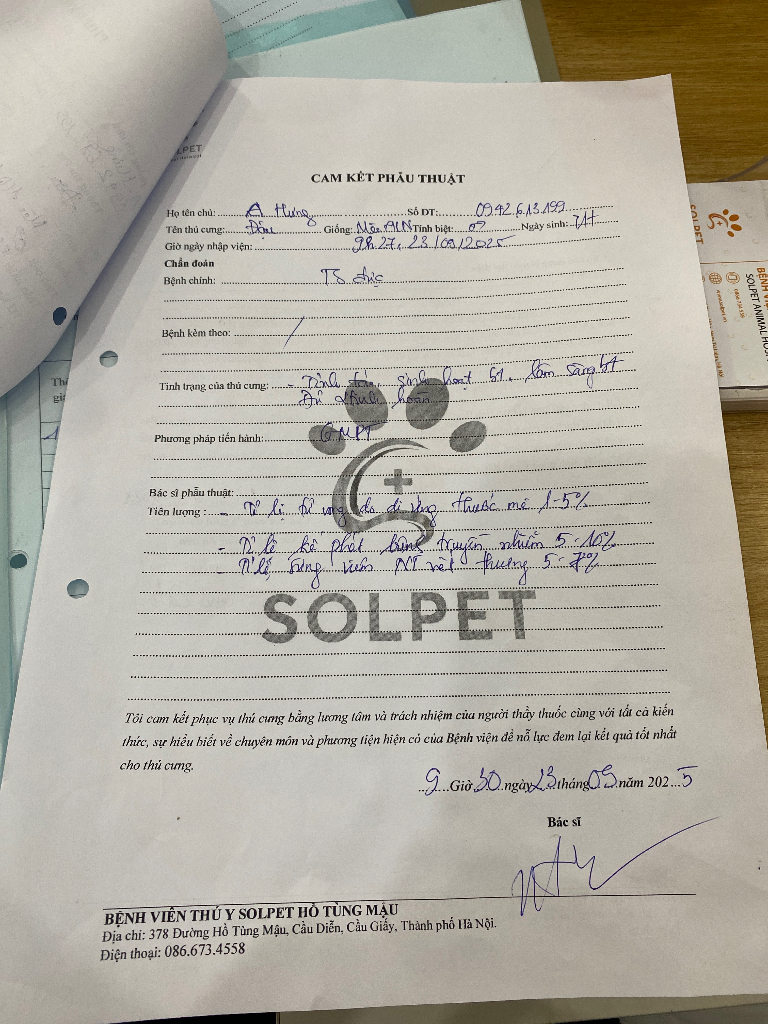 LPET
CAM KẾT PHẪU THUẬT
Họ tên chủ: A Hưng Số ĐT: 0942.613.199
Tên thú cưng: Đậu Giống: Mèo ALN Tính biệt: Ngày sinh: 7H
Giờ ngày nhập viện: 9h27, 23/09/2025
Chẩn đoán
Bệnh chính: TS đực
Bệnh kèm theo: /
Tình trạng của thú cưng: - Tỉnh táo, sinh hoạt bt, lâm sàng bt
Đủ dịch hoàn
Phương pháp tiến hành: GMPT
Bác sĩ phẫu thuật:
Tiên lượng: - Tỉ lệ tử vong do dị ứng thuốc mê 1-5%
- Tỉ lệ kế phát bệnh truyền nhiễm 5-10%
Tỉ lệ sưng viêm NT vết thương 5-7%
SOLPET
Tôi cam kết phục vụ thú cưng bằng lương tâm và trách nhiệm của người thầy thuốc cùng với tất cả kiến
thức, sự hiểu biết về chuyên môn và phương tiện hiện có của Bệnh viện để nỗ lực đem lại kết quả tốt nhất
cho thú cưng.
9 Giờ 30 ngày 23 tháng 09 năm 2025
Bác sĩ
BỆNH VIỆN THÚ Y SOLPET HỒ TÙNG MẬU
Địa chỉ: 378 Đường Hồ Tùng Mậu, Cầu Diễn, Cầu Giấy, Thành phố Hà Nội.
Điện thoại: 086.673.4558
SOLPET
BỆNH VIỆ
SOLPET ANIMAL HOS